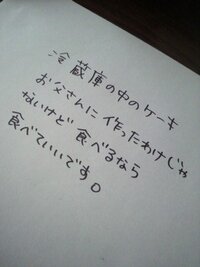 冷蔵庫の中のケーキ
お父さんに作ったわけじゃ
ないけど 食べるなら
食べていいです。